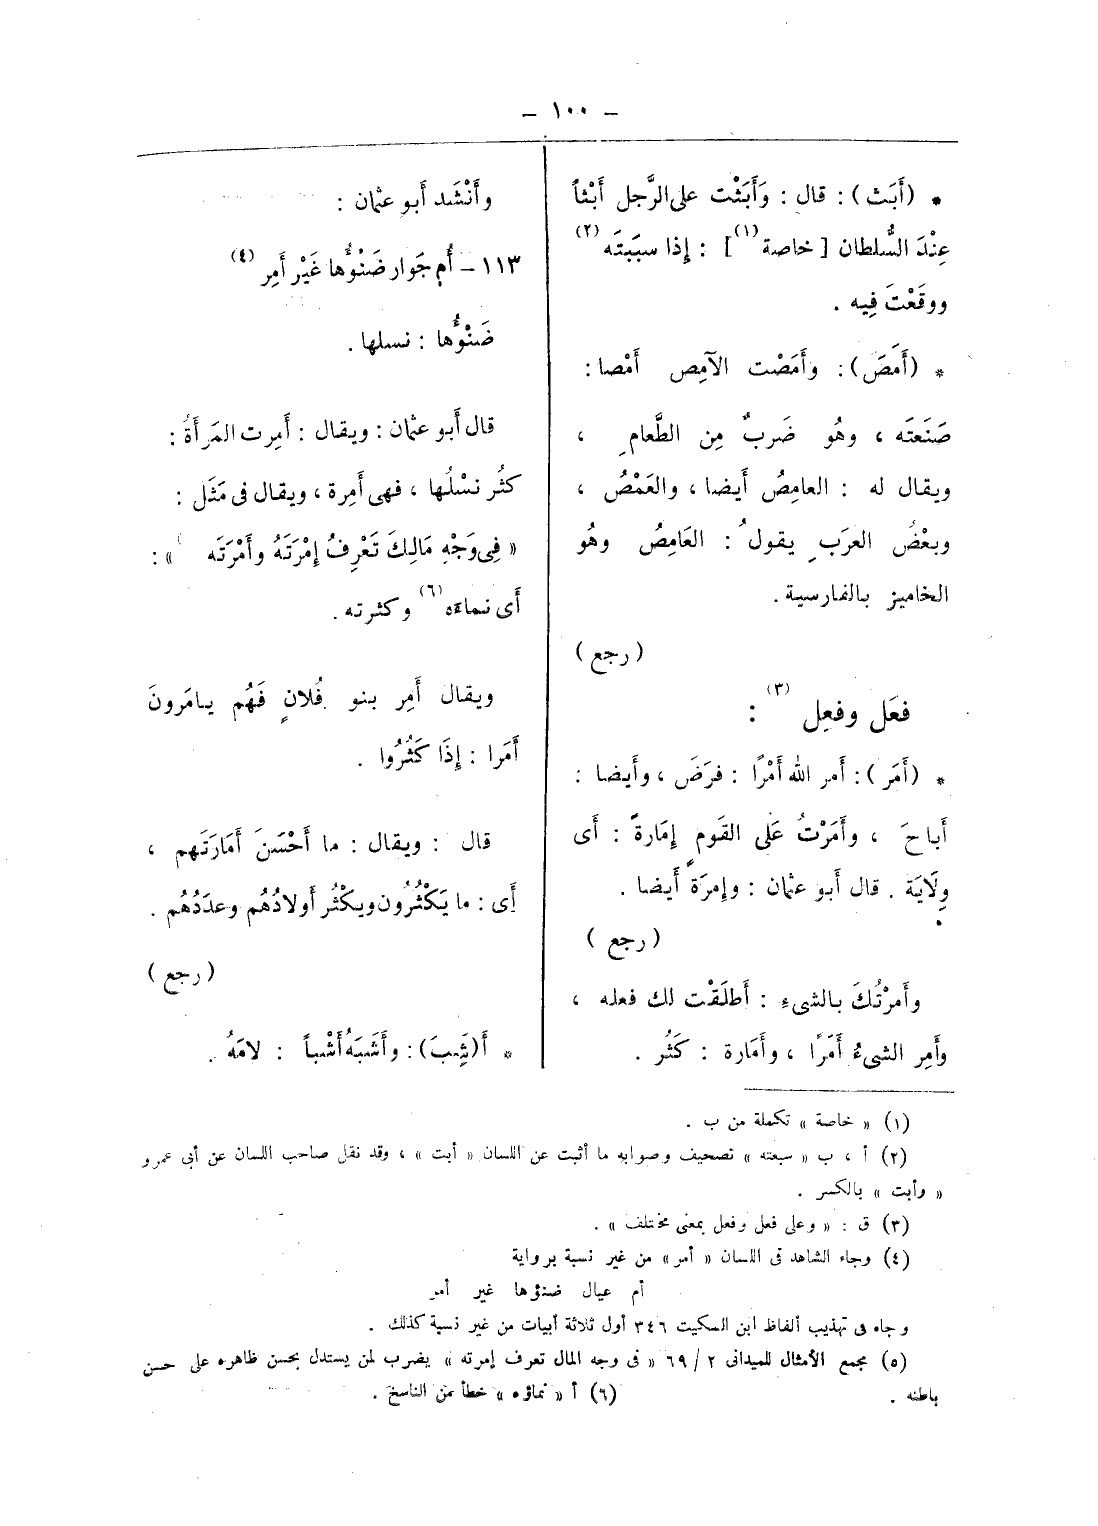 – ١٠٠ –
* (أَبَث) : قال : وَأَبَثْت على الرَّجل أَبْثاً
عِنْدَ السُّلطان [ خاصة (١) ] : إِذا سبَبَتَه (٢)
ووقَعْتَ فِيه .
* (أَمَصَ) : وأَمَصْت الآمِص أَمْصا :
صَنَعتَه ، وهُو ضَربٌ مِن الطَّعام ،
ويقال له : العامِصُ أَيضا ، والعَمْصُ ،
وبعْضُ العرَبِ يقولُ : العَامِصُ وهُو
الخاميز بالفارسية .
( رجع )
فعَل وفعِل (٣) :
* (أَمَر) : أَمر الله أَمْرًا : فرَضَ ، وأَيضا :
أَباحَ ، وأَمَرْتُ عَلى القَوم إِمَارةً : أَى
وِلَايَة . قال أَبو عثمان : وإِمرَةً أَيضا .
( رجع )
وأَمرْتُكَ بالشىءِ : أَطلَقْت لك فعله ،
وأَمِر الشىءُ أَمَرًا ، وأَمَارة : كَثُر .
وأَنْشَد أَبو عثمان :
١١٣ – أُم جَوار ضَنْوُها غَيْر أَمِر (٤)
ضَنْوُها : نسلها .
قال أَبو عثمان : ويقال : أَمِرت المَرأَةُ :
كثُر نسْلُها ، فهى أَمِرة ، ويقال فى مَثَل :
« فِى وَجْهِ مَالِكَ تَعْرِفُ إِمْرَتَهُ وأَمْرَتَه » :
أَى نماءَه (٦) وكثرته .
ويقال أَمِر بنو فُلانٍ فَهُم يامَرونَ
أَمَرا : إِذَا كَثُرُوا .
قال : ويقال : ما أَحْسَنَ أَمَارَتَهم ،
أَى : ما يَكْثُرُون ويكْثُر أَولادُهُم وعدَدُهُم .
( رجع )
* أَ(شِبَ) : وأَشَبَهُ أَشْباً : لامَهُ .
(١) « خاصة » تكملة من ب .
(٢) أ ، ب « سبعته » تصحيف وصوابه ما أثبت عن اللسان « أبت » ، وقد نقل صاحب اللسان عن أبى عمرو
« وأبت » بالكسر .
(٣) ق : « وعلى فعل وفعل بمعنى مختلف » .
(٤) وجاء الشاهد فى اللسان « أمر » من غير نسبة برواية
أم عيال ضنؤها غير أمر
وجاء فى تهذيب ألفاظ ابن السكيت ٣٤٦ أول ثلاثة أبيات من غير نسبة كذلك .
(٥) مجمع الأمثال للميدانى ٢ / ٦٩ « فى وجه المال تعرف إمرته » يضرب لمن يستدل بحسن ظاهره على حسن
باطنه . (٦) أ « نماؤه » خطأ من الناسخ .